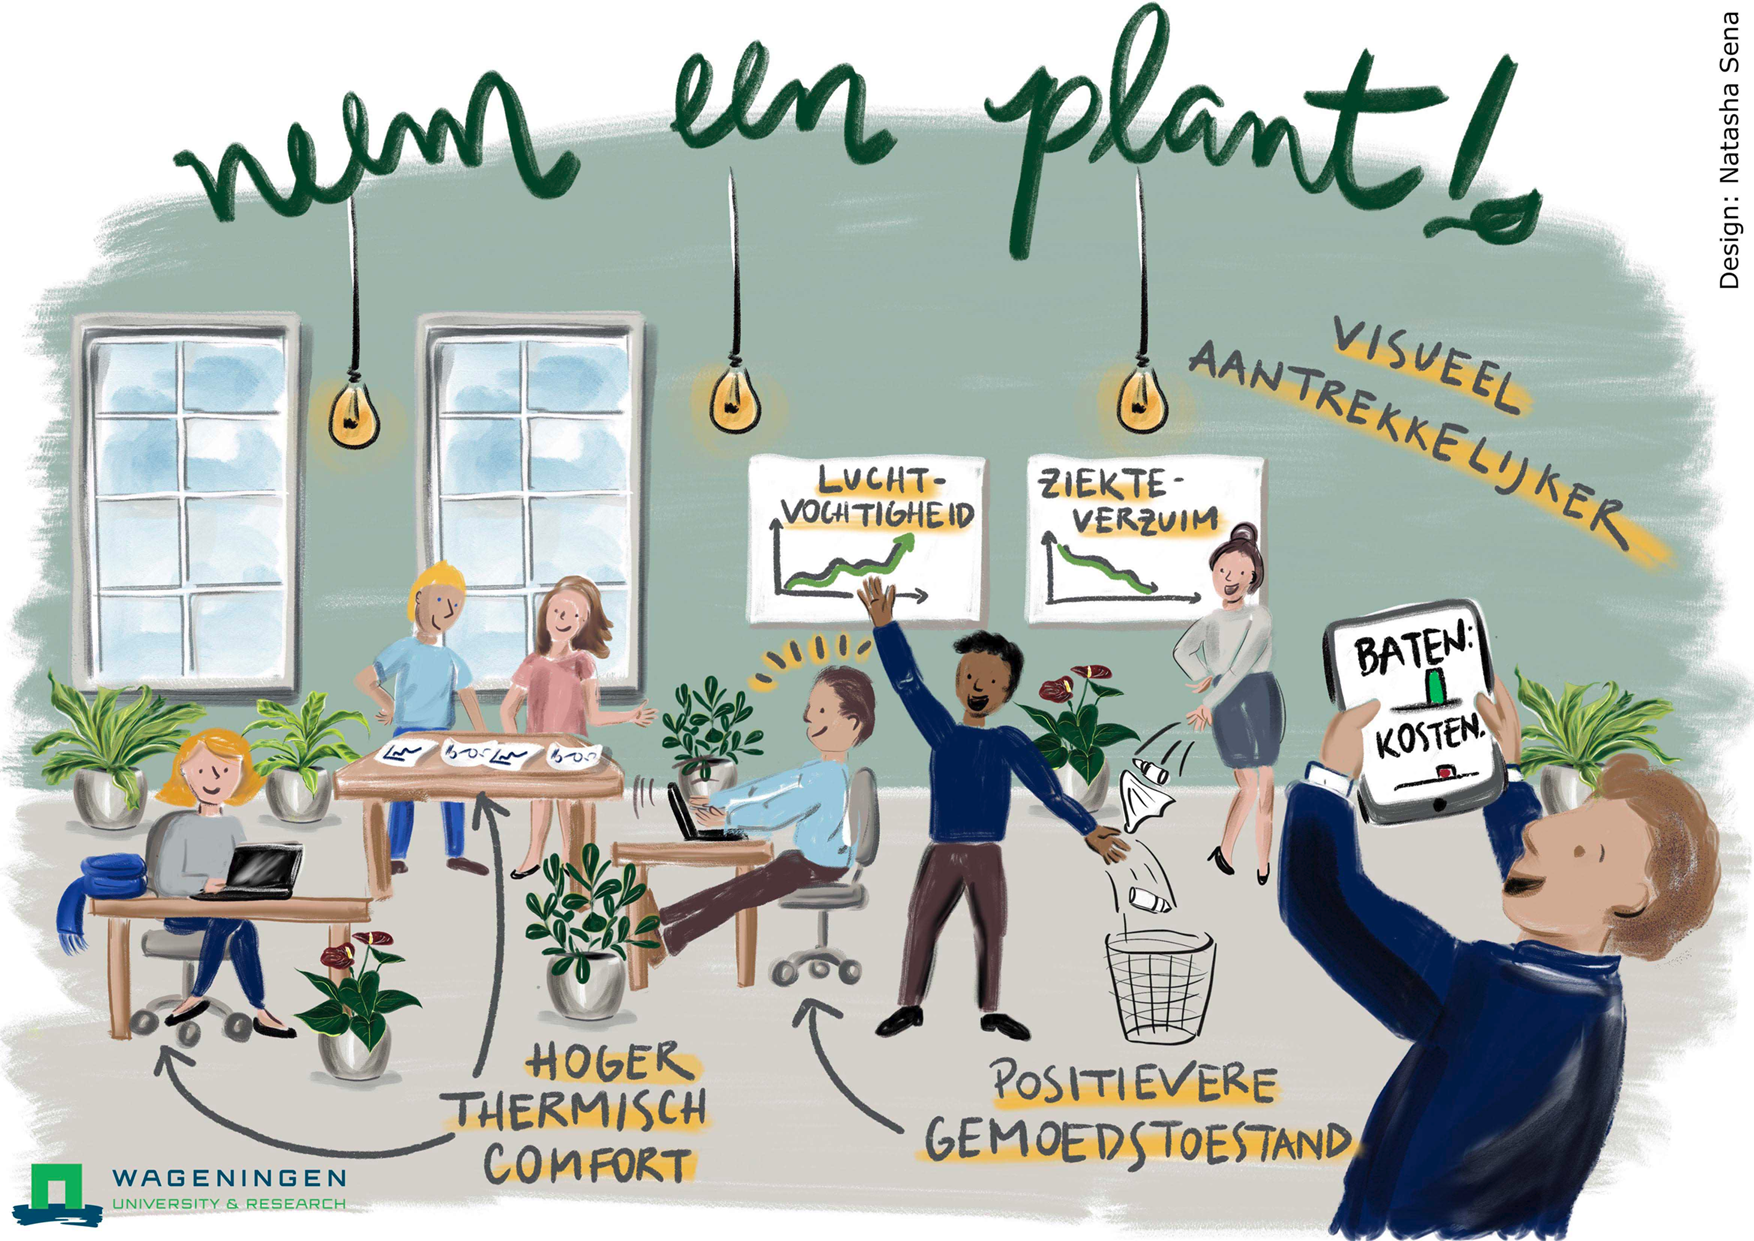 neem een plant!
Design: Natasha Sena
VISUEEL
AANTREKKELIJKER
LUCHT-
VOCHTIGHEID
ZIEKTE-
VERZUIM
BATEN:
KOSTEN:
HOGER
THERMISCH
COMFORT
POSITIEVERE
GEMOEDSTOESTAND
WAGENINGEN
UNIVERSITY & RESEARCH